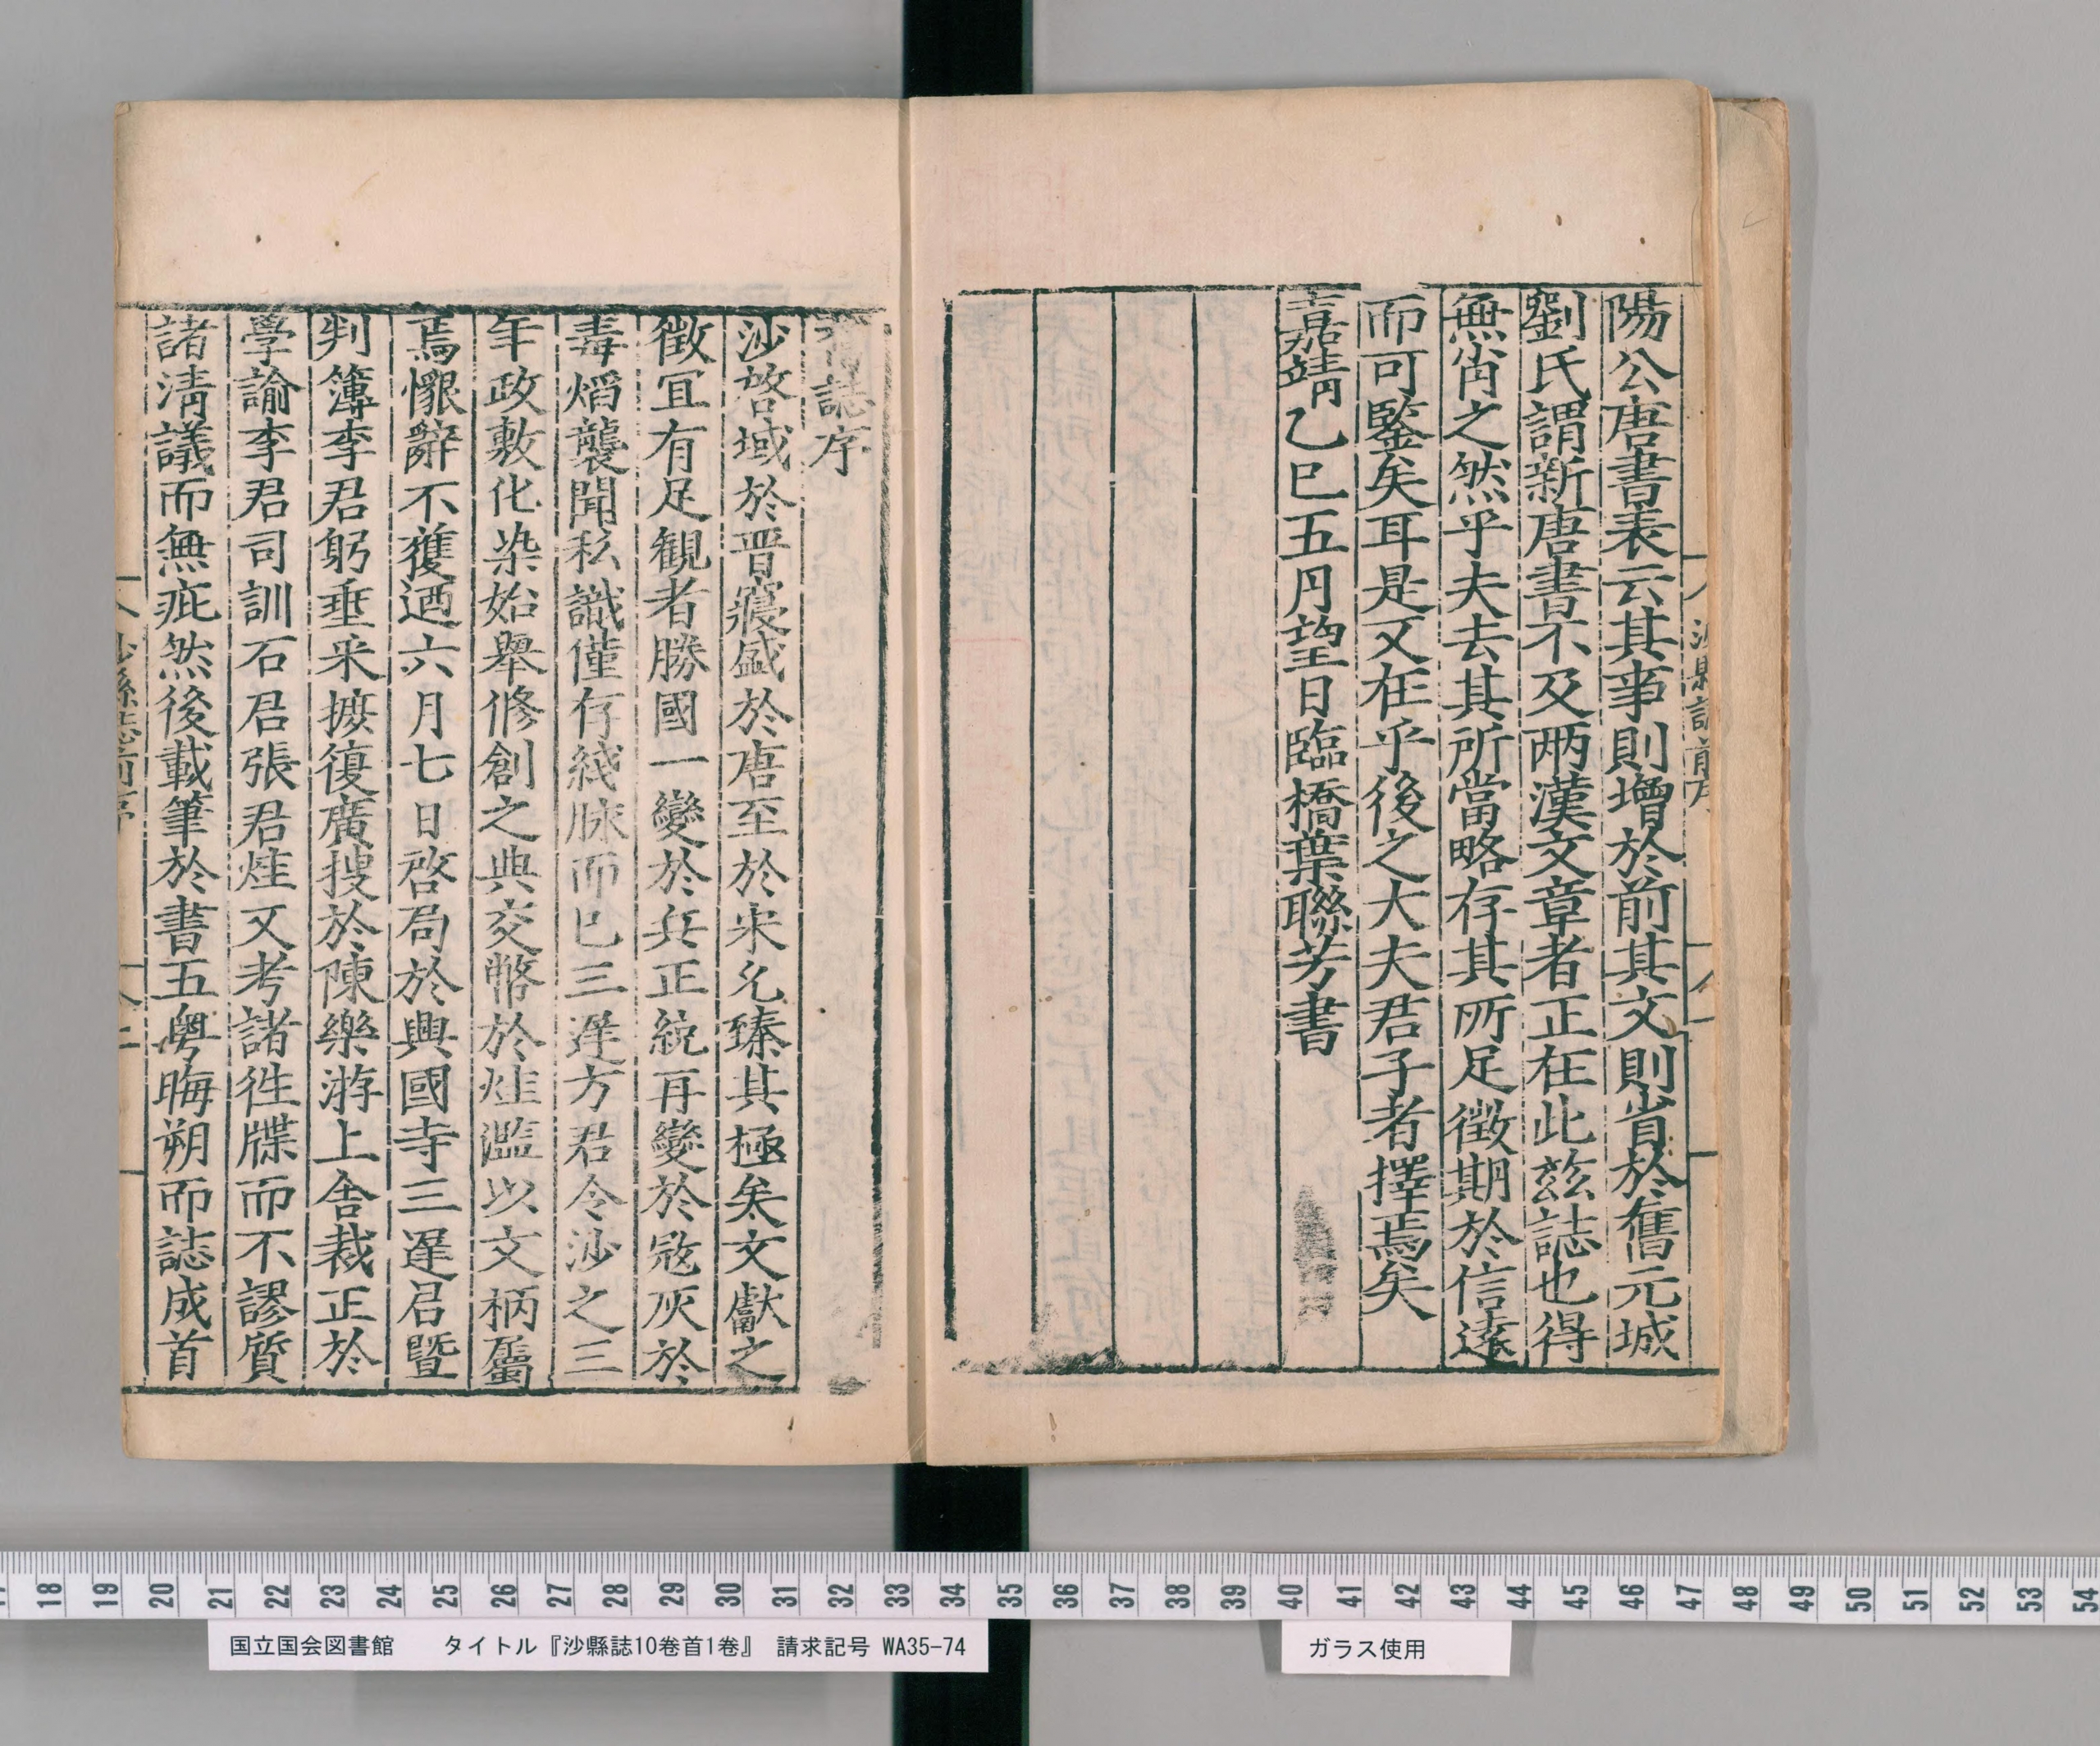 陽公唐書表云其事則增於前其文則省於舊元城
劉氏謂新唐書不及兩漢文章者正在此兹誌也得
無肖之然乎夫去其所當略存其所足徵期於信遠
而可鑒矣耳是又在乎後之大夫君子者擇焉矣
嘉靖乙巳五月望日臨橋葉聯芳書
沙縣誌前序
誌序
沙啓域於晋寢盛於唐至於宋允臻其極矣文獻之
徵宜有足観者勝國一變於兵正統再變於寇灰於
毒熖襲聞私識僅存綫脉而已三遅方君令沙之三
年政敷化染始舉脩創之典交幣於烓濫以文柄屬
焉懇辭不獲迺六月七日啓局於興國寺三遅君暨
判簿李君躬垂采摭復廣搜於陳樂游上舎裁正於
學諭李君司訓石君張君烓又考諸徃牒而不謬質
諸淸議而無疵然後載筆於書五粤晦朔而誌成首
沙縣誌前序
二
17 18 19 20 21 22 23 24 25 26 27 28 29 30 31 32 33 34 35 36 37 38 39 40 41 42 43 44 45 46 47 48 49 50 51 52 53 54
国立国会図書館 タイトル『沙縣誌10巻首1巻』 請求記号 WA35-74
ガラス使用